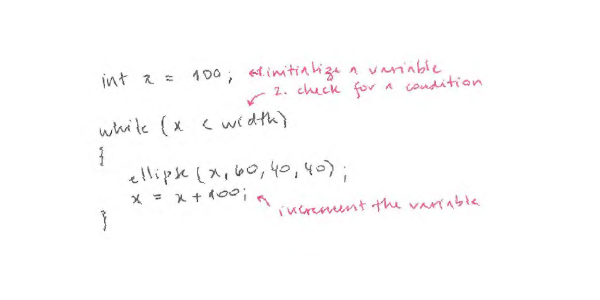 int x = 100; ←1. initialize a variable
2. check for a condition
while (x < width)
{
ellipse (x, 60, 40, 40);
x = x + 100; increment the variable
}